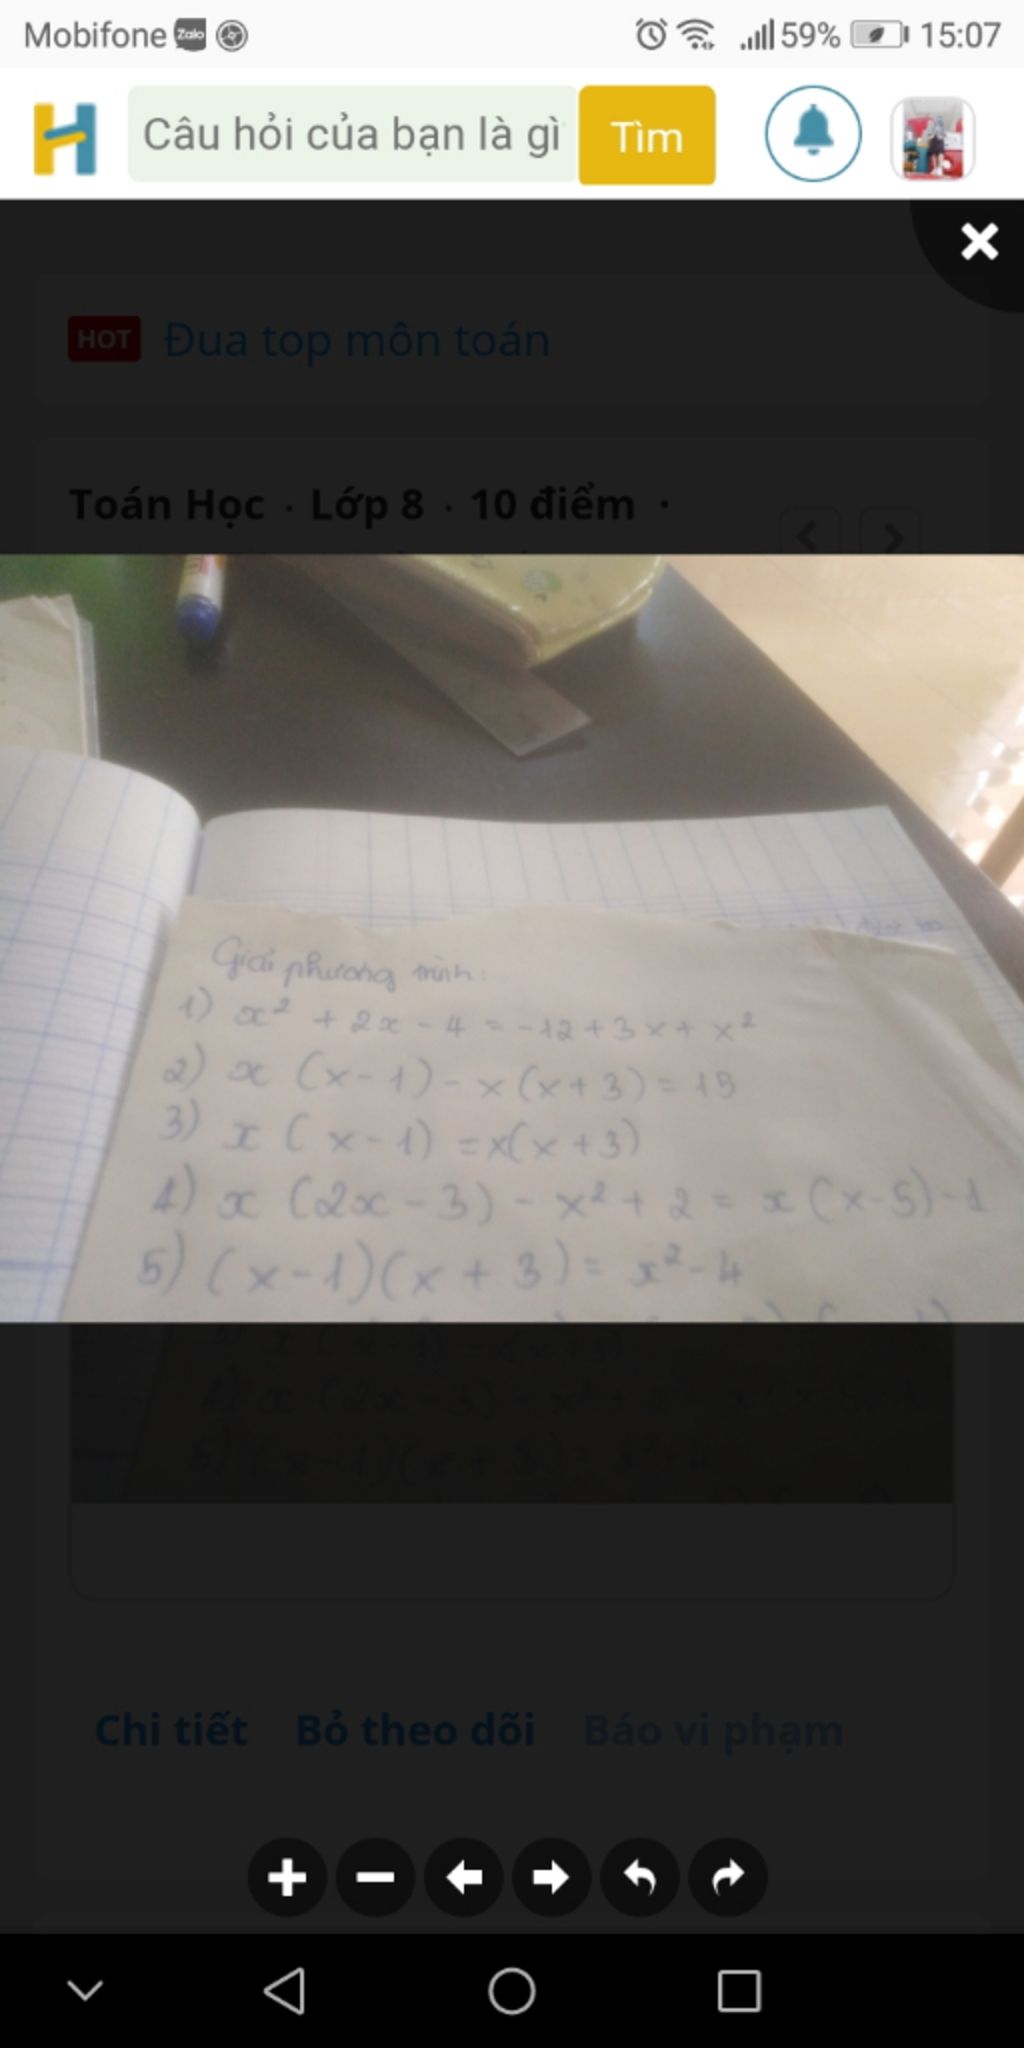 Mobifone Zalo 59% 15:07
H Câu hỏi của bạn là gì Tìm
HOT Đua top môn toán
Toán Học · Lớp 8 · 10 điểm ·
Giải phương trình:
1) x² + 2x - 4 = -12 + 3x + x²
2) x (x-1) - x (x + 3) = 15
3) x (x-1) = x(x + 3)
4) x (2x - 3) - x² + 2 = x (x-5) - 1
5) (x-1)(x + 3) = x² - 4
Chi tiết Bỏ theo dõi Báo vi phạm